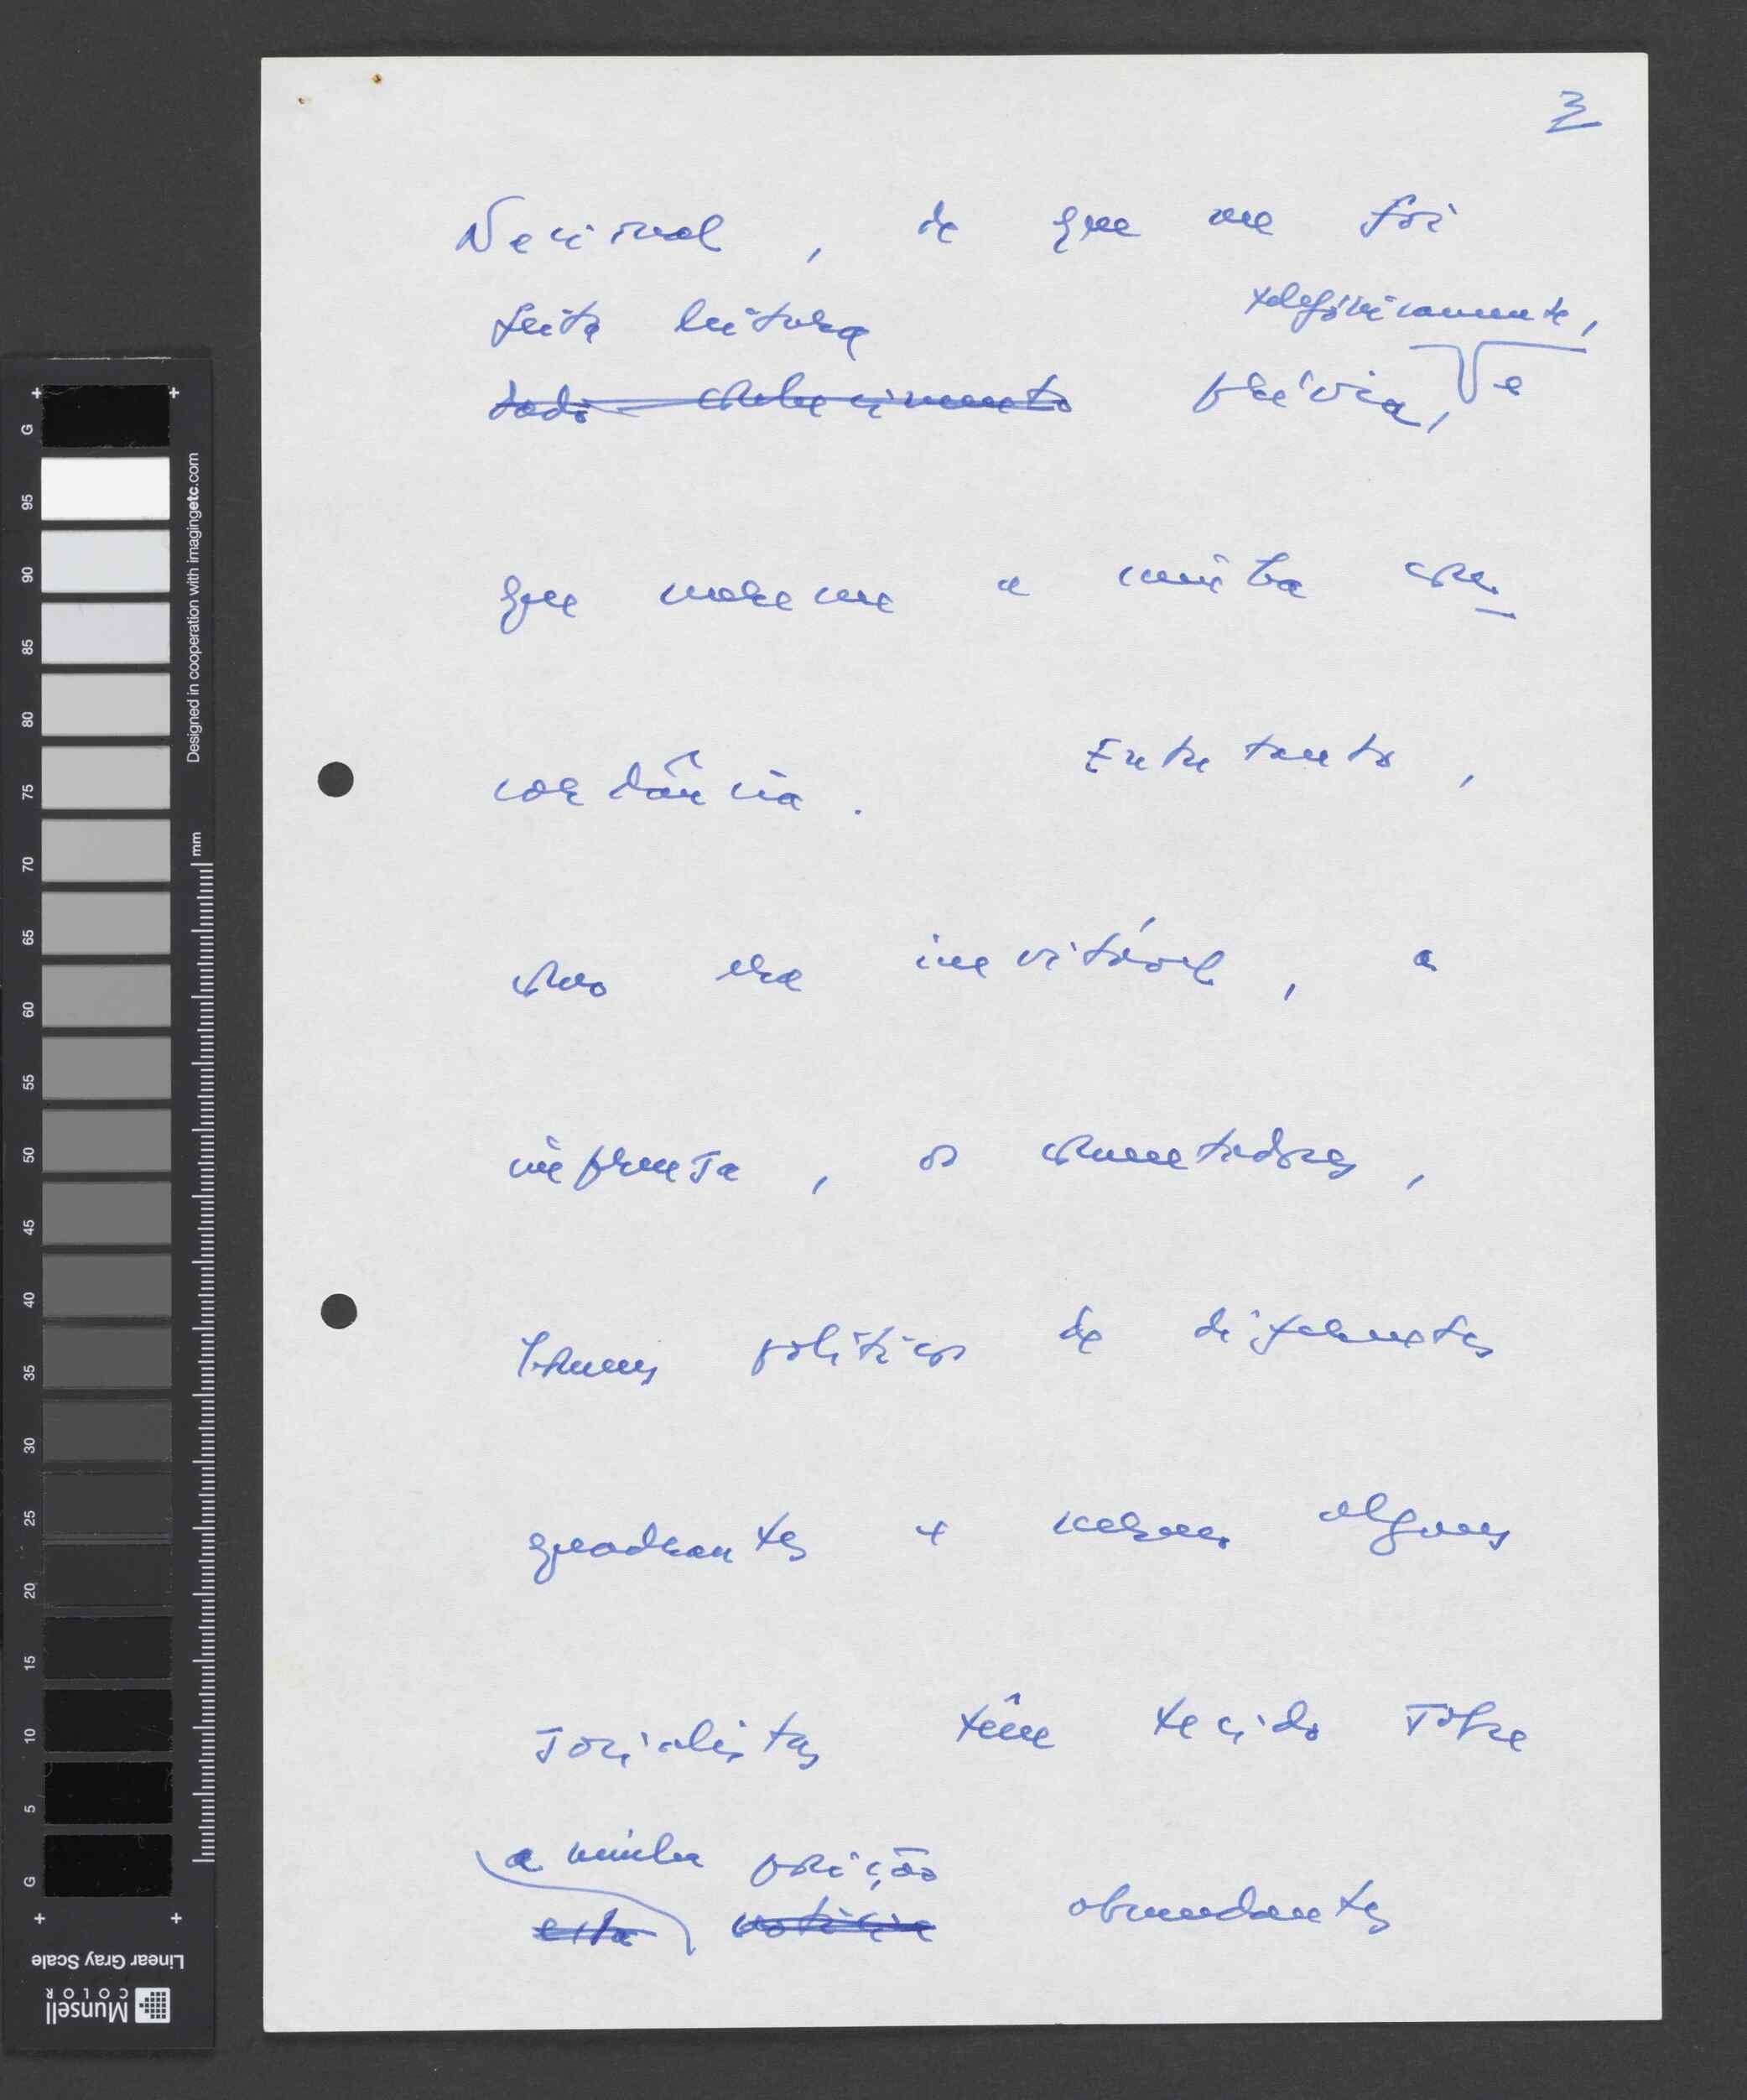 3
Nacional, de que me foi
feita leitura telefónicamente,
dado conhecimento prévia, e
que merece a minha con-
cordância. Entretanto,
como era inevitável, a
imprensa, os comentadores,
homens políticos de diferentes
quadrantes e mesmo alguns
socialistas têm tecido sobre
a minha posição
esta notícia abundantes
G 95 90 85 80 75 70 65 60 55 50 45 40 35 30 25 20 15 10 5 G
mm
Designed in cooperation with imagingetc.com
Linear Gray Scale
Munsell
COLOR